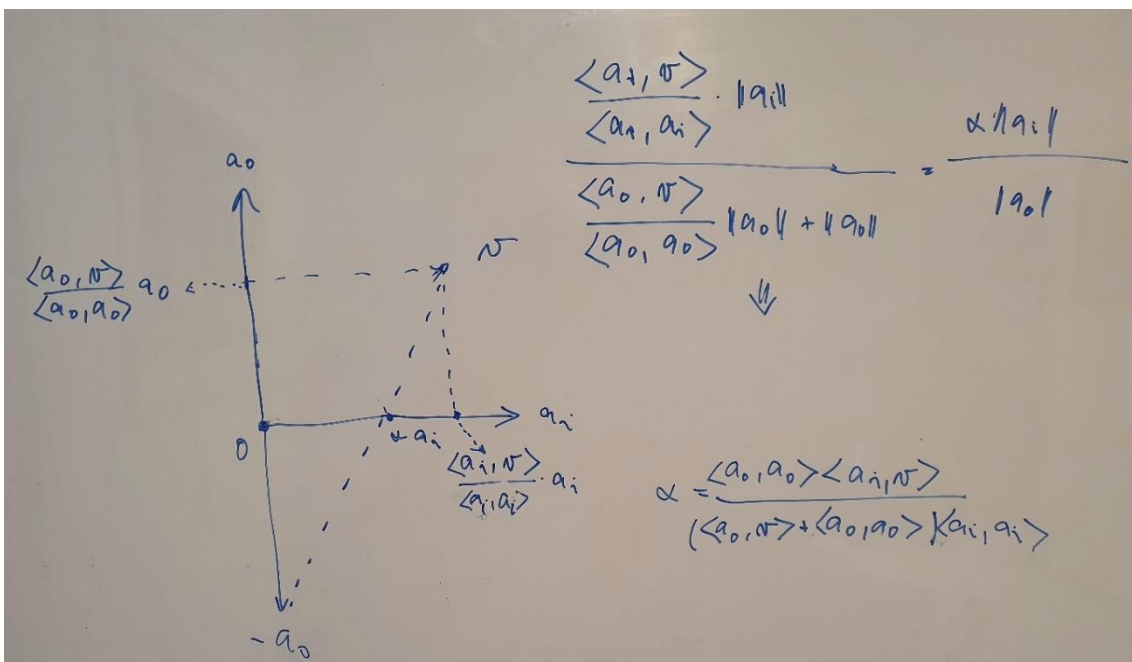 a₀
v
<a₀, v> / <a₀, a₀> a₀
0
α aᵢ
aᵢ
<aᵢ, v> / <aᵢ, aᵢ> · aᵢ
-a₀
(<aᵢ, v> / <aᵢ, aᵢ> · ‖aᵢ‖) / (<a₀, v> / <a₀, a₀> ‖a₀‖ + ‖a₀‖) = α ‖aᵢ‖ / ‖a₀‖
⇓
α = <a₀, a₀> <aᵢ, v> / (<a₀, v> + <a₀, a₀>)<aᵢ, aᵢ>